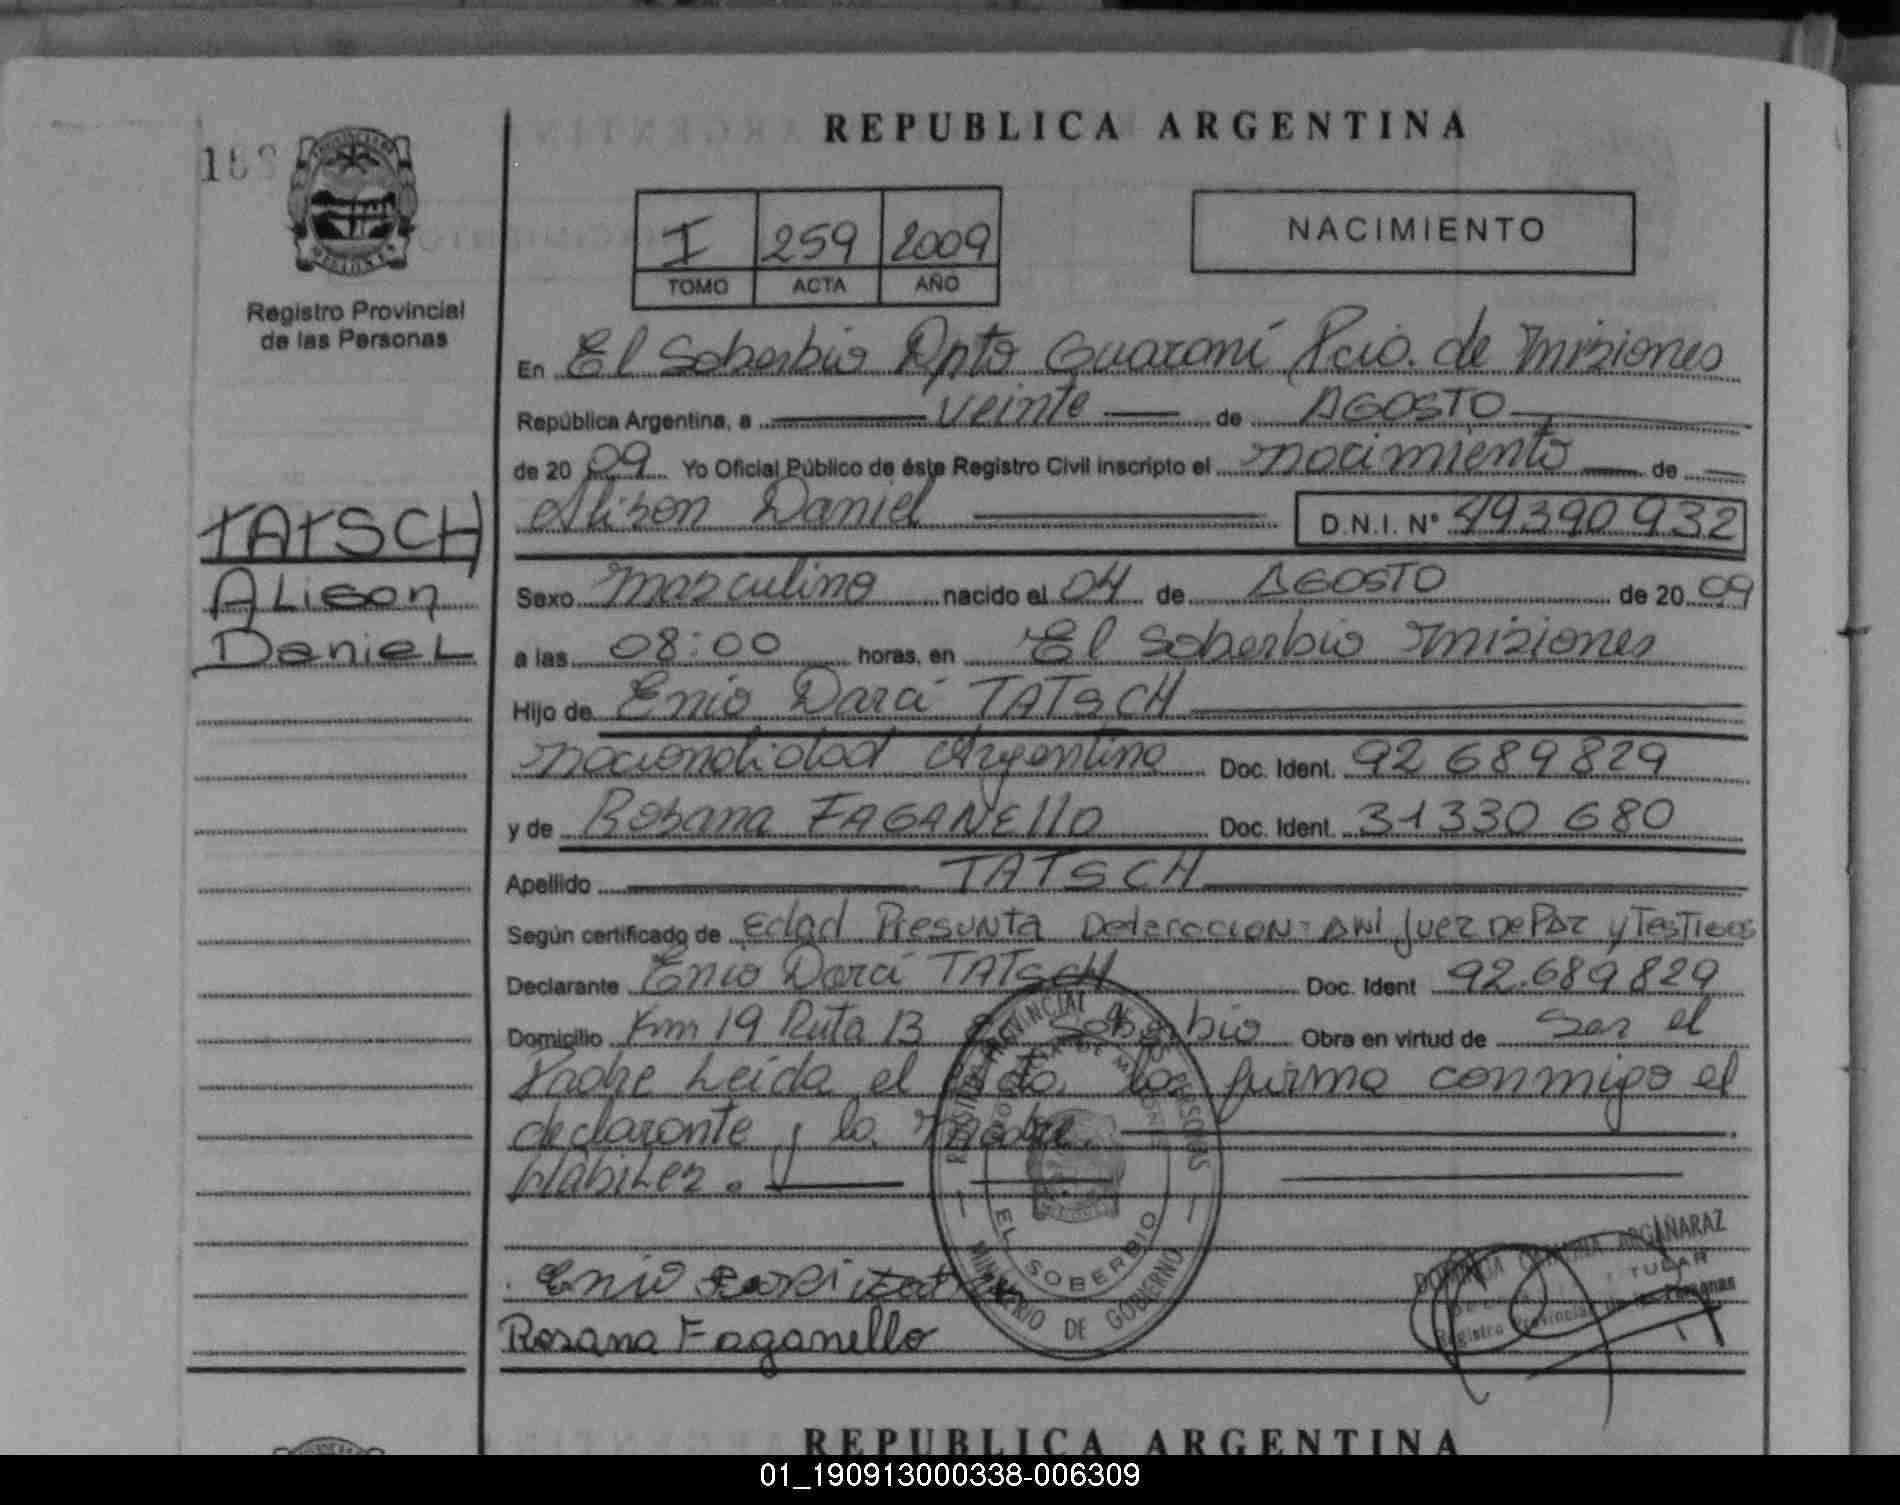 REPUBLICA ARGENTINA
Registro Provincial
de las Personas
I 259 2009
TOMO ACTA AÑO
NACIMIENTO
En El Soberbio Dpto Guaraní Pcia. de Misiones
República Argentina, a veinte de AGOSTO
de 20 09 Yo Oficial Público de éste Registro Civil inscripto el nacimiento de
Alison Daniel D.N.I. N° 49390932
TATSCH
Alison
Daniel
Sexo masculino nacido el 04 de AGOSTO de 20 09
a las 08:00 horas, en El Soberbio Misiones
Hijo de Enio Darci TATSCH
nacionalidad Argentina Doc. Ident. 92 689829
y de Rosana FAGANELLO Doc. Ident. 31330 680
Apellido TATSCH
Según certificado de Edad Presunta Juez De Paz y Testigos
Declarante Enio Darci TATSCH Doc. Ident 92.689829
Domicilio Km 19 Ruta 13 El Soberbio Obra en virtud de ser el
Padre Leída el Acta la firma conmigo el
declarante y la Madre.
REGISTRO PROVINCIAL DE LAS PERSONAS
PROVINCIA DE MISIONES
EL SOBERBIO
MINISTERIO DE GOBIERNO
Enio Darci Tatsch
Rosana Faganello
ARGAÑARAZ
TITULAR
Registro Provincial de las Personas
REPUBLICA ARGENTINA
01_190913000338-006309